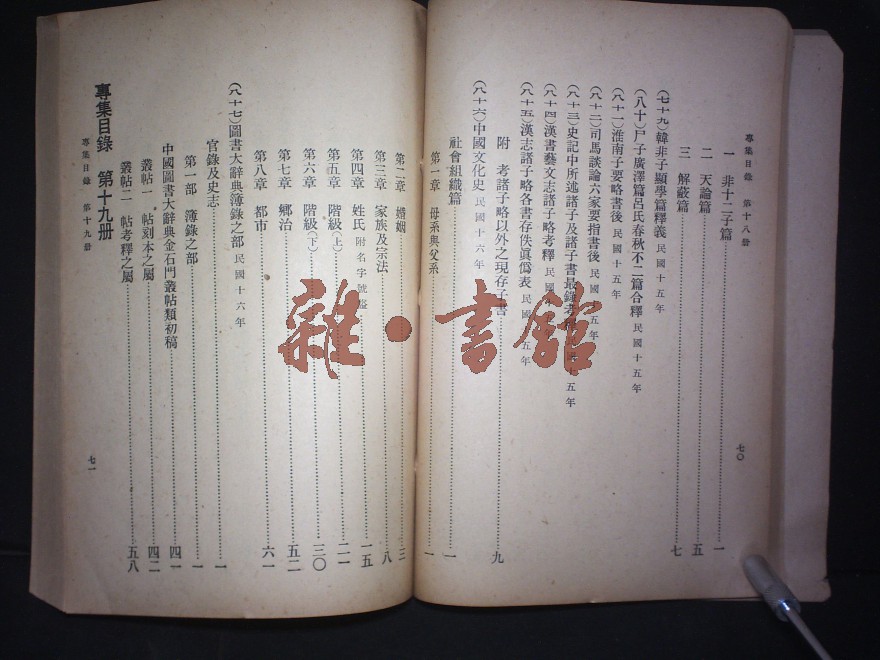 專集目錄 第十八册
一 非十二子篇 一
二 天論篇 五
三 解蔽篇 七
(七十九)韓非子顯學篇釋義 民國十五年
(八十)尸子廣澤篇呂氏春秋不二篇合釋 民國十五年
(八十一)淮南子要略書後 民國十五年
(八十二)司馬談論六家要指書後 民國十五年
(八十三)史記中所述諸子及諸子書最錄考釋 民國十五年
(八十四)漢書藝文志諸子略考釋 民國
(八十五)漢志諸子略各書存佚眞僞表 民國十五年
附 考諸子略以外之現存子書 九
(八十六)中國文化史 民國十六年
社會組織篇 一
第一章 母系與父系 一
七〇
第二章 婚姻 三
第三章 家族及宗法 八
第四章 姓氏 附名字號諡 一五
第五章 階級(上) 二一
第六章 階級(下) 三〇
第七章 鄉治 五二
第八章 都市 六一
(八十七)圖書大辭典簿錄之部 民國十六年
官錄及史志 一
第一部 簿錄之部 一
中國圖書大辭典金石門叢帖類初稿 四一
叢帖一 帖刻本之屬 四二
叢帖二 帖考釋之屬 五八
專集目錄 第十九册
專集目錄 第十九册
七一
雜·書館